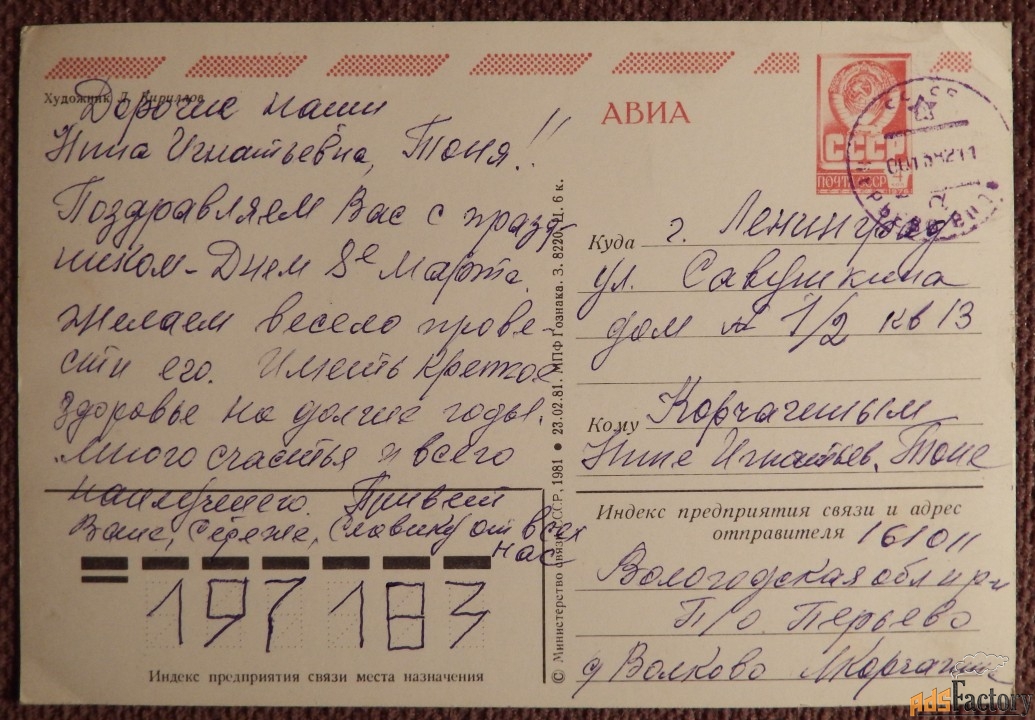 Художник Л. Кириллов
Дорогие наши
Нина Игнатьевна, Тоня!!
Поздравляем Вас с празд-
ником - Днем 8е Марта.
Желаем весело прове-
сти его. Иметь крепкое
здоровье на долгие годы.
Много счастья и всего
наилучшего. Привет
Ване, Сереже, Славику от всех
нас
197183
Индекс предприятия связи места назначения
© Министерство связи СССР, 1981 • 23.02.81. МПФ Гознака. З. 8220. Ц. 6 к.
АВИА
СССР
ПОЧТА СССР
4
Куда г. Ленинград
ул. Савушкина
дом № 1/2 кв 13
Кому Корчагиным
Нине Игнатьев. Тоне
Индекс предприятия связи и адрес
отправителя 161011
Вологодская обл
П/о Перьево
д Волково Корчагин
AdsFactory